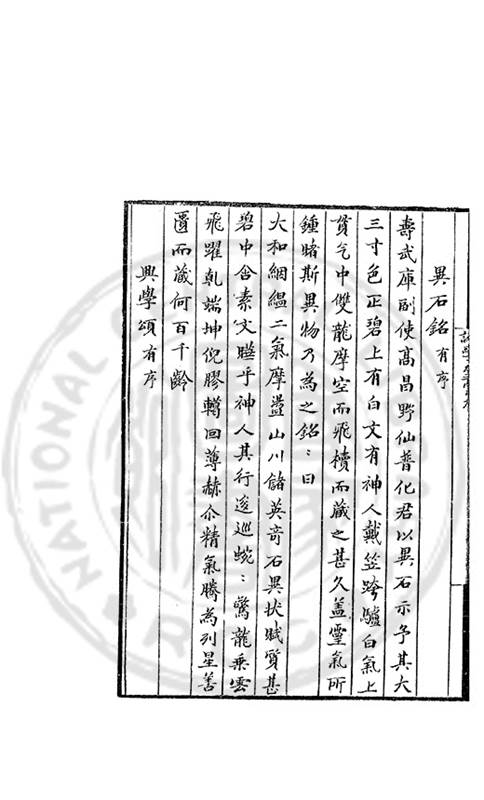 異石銘 有序
壽武庫副使高昌野仙普化君以異石示予其大
三寸色正碧上有白文有神人戴笠跨驢白氣上
貫气中雙龍摩空而飛櫝而藏之甚久盖靈氣所
鍾睹斯異物乃為之銘:曰
大和絪縕二氣摩盪山川儲英奇石異状賦質甚
碧中含素文乎神人其行逡巡蜿:驚龍乘雲
飛躍乹端坤倪膠轕回薄赫尒精氣騰為列星善
匵而藏何百千齡
興學頌 有序
NATIONAL